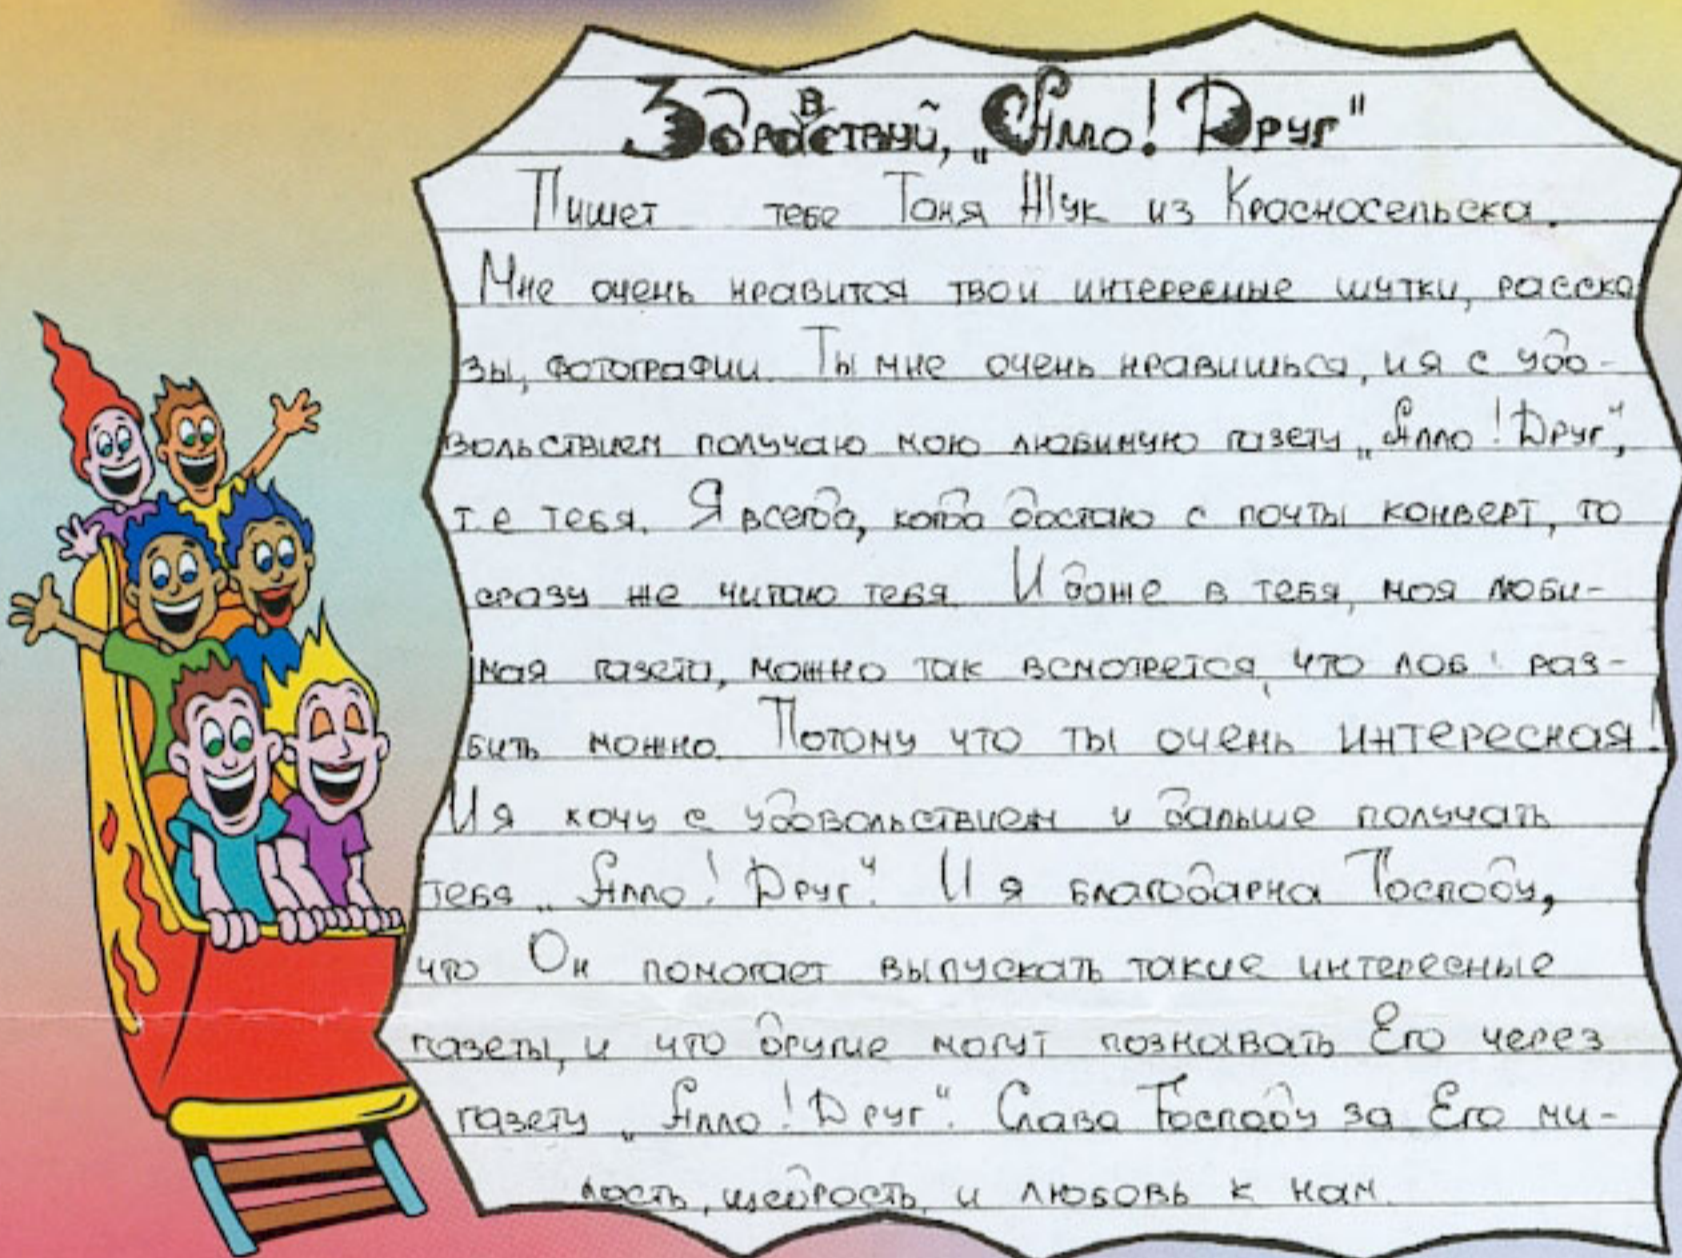 Здравствуй, „Алло! Друг"
Пишет тебе Таня Жук из Красносельска.
Мне очень нравится твои интересные шутки, расска
зы, фотографии. Ты мне очень нравишься, и я с удо-
вольствием получаю мою любимую газету „Алло! Друг",
т.е тебя. Я всегда, когда достаю с почты конверт, то
сразу же читаю тебя. И даже в тебя, моя люби-
мая газета, можно так всмотрется, что лоб раз-
бить можно. Потому что ты очень интересная!
И я хочу с удовольствием и дальше получать
тебя „Алло! Друг". И я благодарна Господу,
что Он помогает выпускать такие интересные
газеты, и что другие могут познавать Его через
газету „Алло! Друг". Слава Господу за Его ми-
лость, щедрость и любовь к нам.